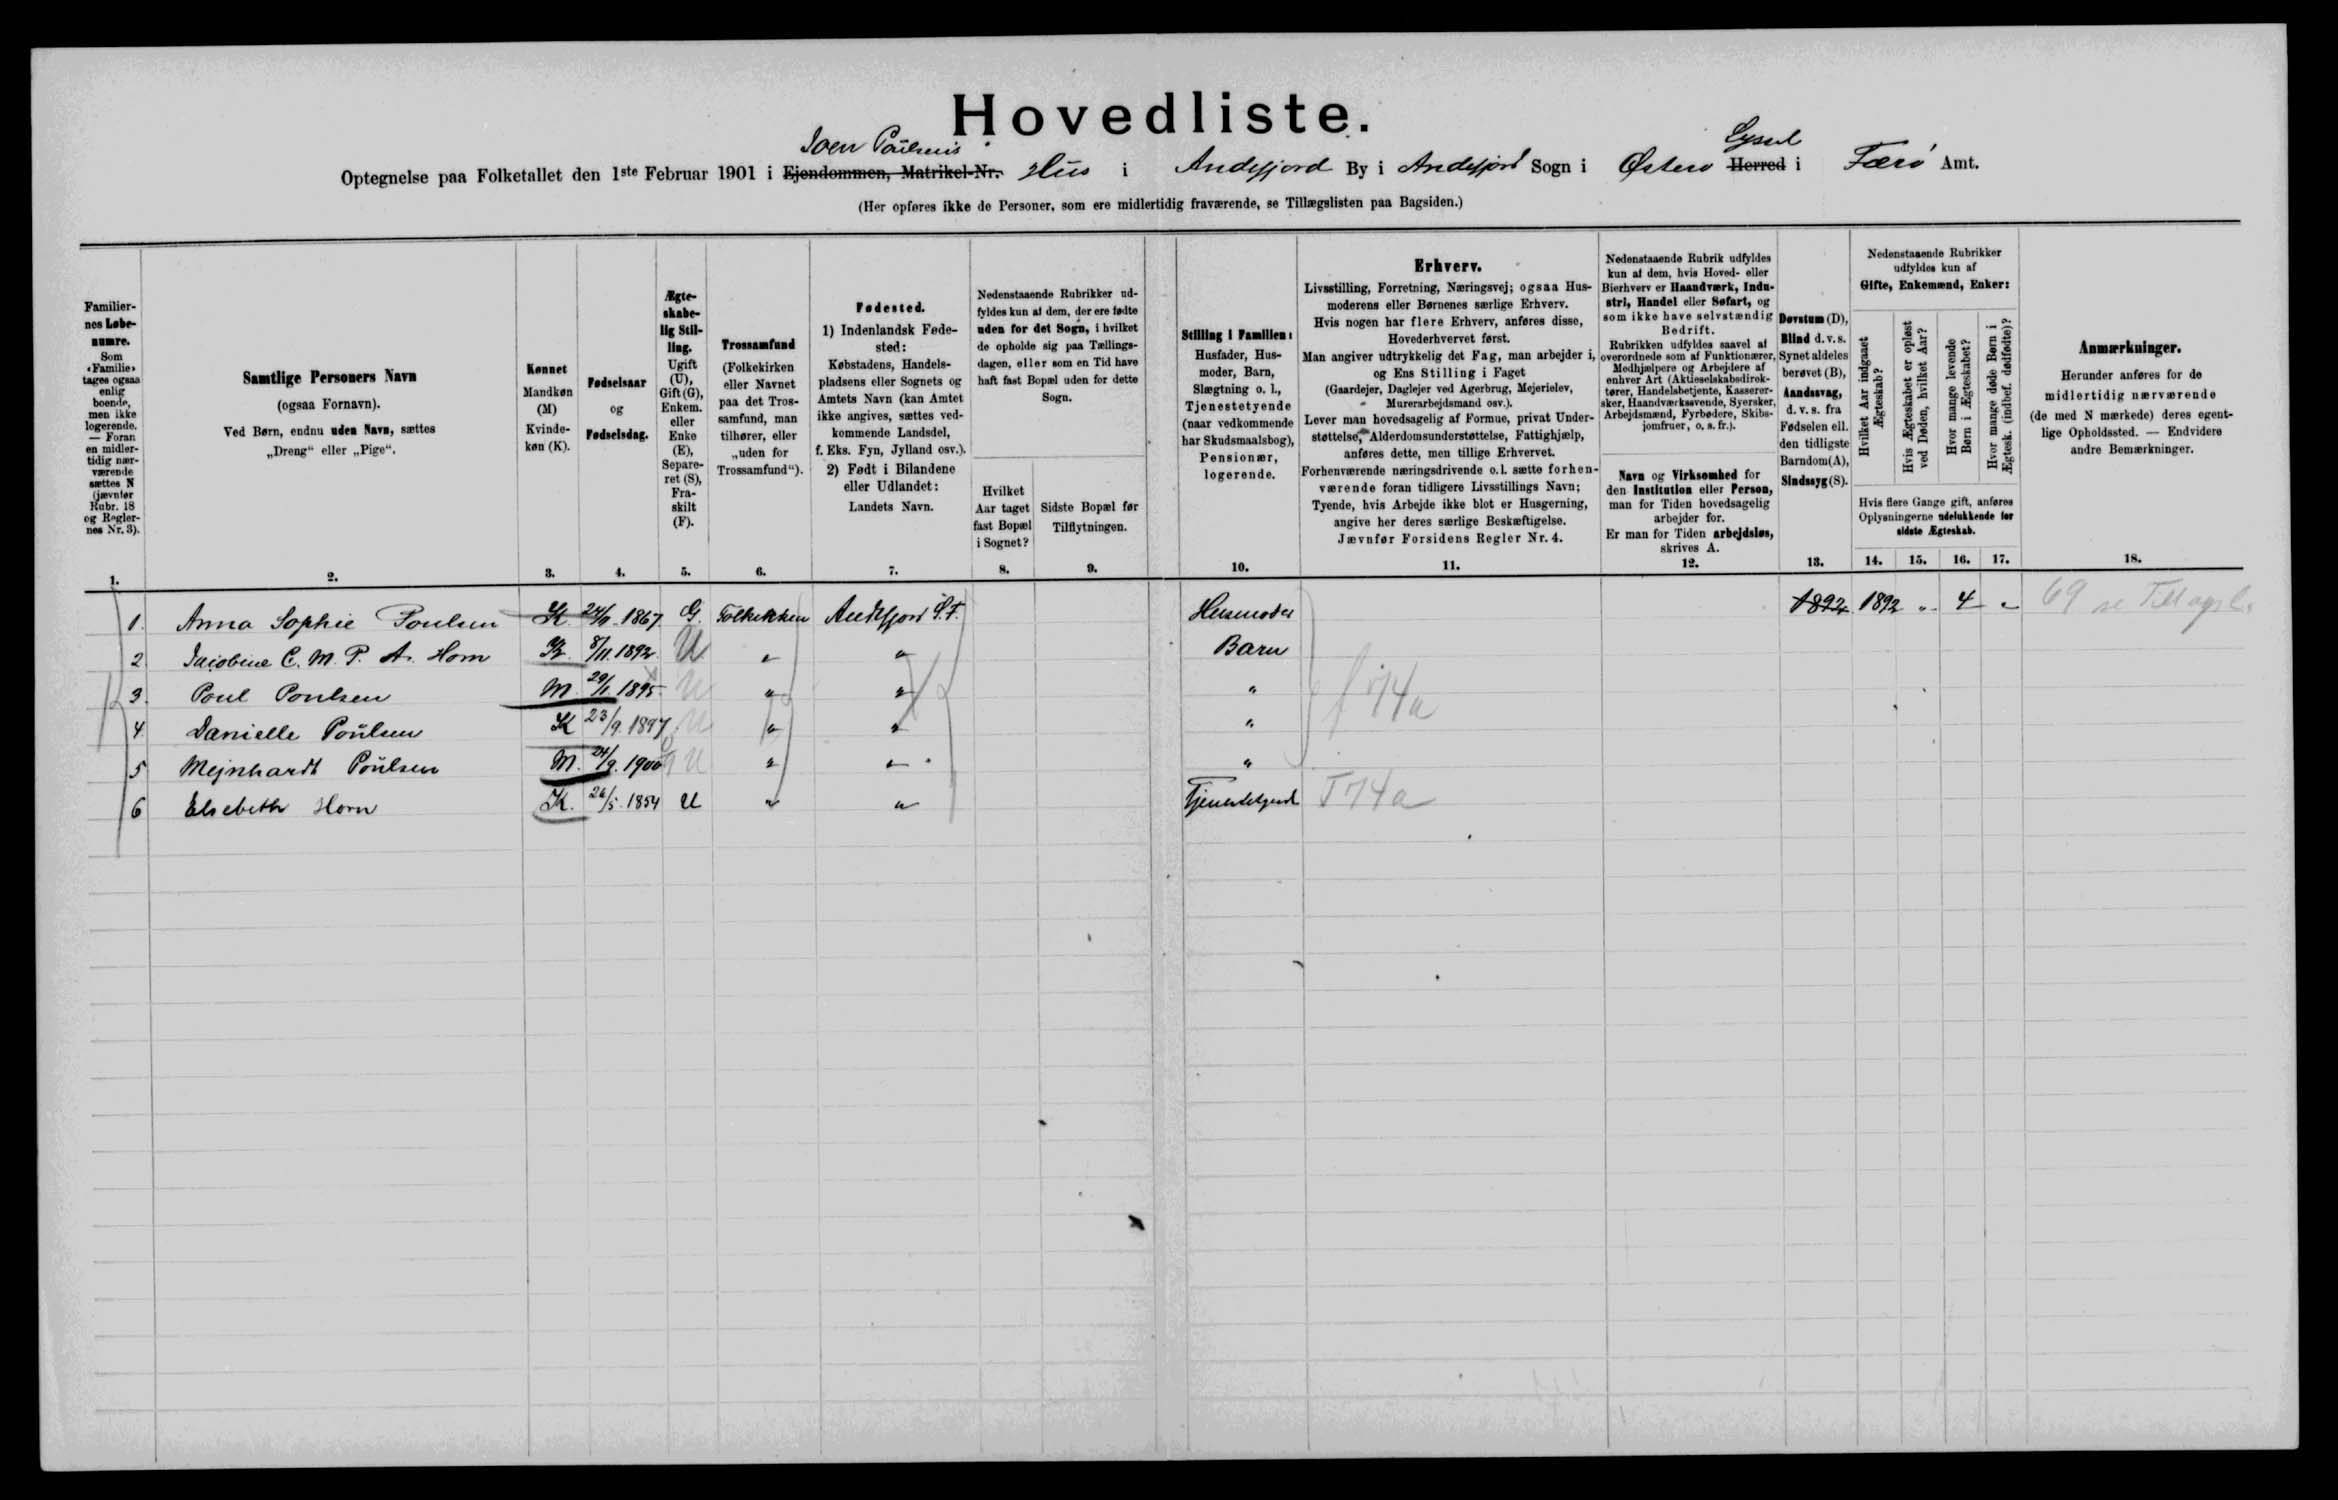 Hovedliste.
Joen Poulsens Sysel
Optegnelse paa Folketallet den 1ste Februar 1901 i Ejendommen, Matrikel-Nr. Hus i Andefjord By i Andefjord Sogn i Østerø Herred i Færø Amt.
(Her opføres ikke de Personer, som ere midlertidig fraværende, se Tillægslisten paa Bagsiden.)
Familier-
nes Løbe-
numre.
Som
«Familie»
tages ogsaa
enlig
boende,
men ikke
logerende.
— Foran
en midler-
tidig nær-
værende
sættes N
(jævnfør
Rubr. 18
og Regler-
nes Nr. 3).
1.
Samtlige Personers Navn
(ogsaa Fornavn).
Ved Børn, endnu uden Navn, sættes
„Dreng“ eller „Pige“.
2.
Kønnet
Mandkøn
(M)
Kvinde-
køn (K).
3.
Fødselsaar
og
Fødselsdag.
4.
Ægte-
skabe-
lig Stil-
ling.
Ugift
(U),
Gift (G),
Enkem.
eller
Enke
(E),
Separe-
ret (S),
Fra-
skilt
(F).
5.
Trossamfund
(Folkekirken
eller Navnet
paa det Tros-
samfund, man
tilhører, eller
„uden for
Trossamfund“).
6.
Fødested.
1) Indenlandsk Føde-
sted:
Købstadens, Handels-
pladsens eller Sognets og
Amtets Navn (kan Amtet
ikke angives, sættes ved-
kommende Landsdel,
f. Eks. Fyn, Jylland osv.).
2) Født i Bilandene
eller Udlandet:
Landets Navn.
7.
Nedenstaaende Rubrikker ud-
fyldes kun af dem, der ere fødte
uden for det Sogn, i hvilket
de opholde sig paa Tællings-
dagen, eller som en Tid have
haft fast Bopæl uden for dette
Sogn.
Hvilket
Aar taget
fast Bopæl
i Sognet?
8.
Sidste Bopæl før
Tilflytningen.
9.
Stilling i Familien:
Husfader, Hus-
moder, Barn,
Slægtning o. l.,
Tjenestetyende
(naar vedkommende
har Skudsmaalsbog),
Pensionær,
logerende.
10.
Erhverv.
Livsstilling, Forretning, Næringsvej; ogsaa Hus-
moderens eller Børnenes særlige Erhverv.
Hvis nogen har flere Erhverv, anføres disse,
Hovederhvervet først.
Man angiver udtrykkelig det Fag, man arbejder i,
og Ens Stilling i Faget
(Gaardejer, Daglejer ved Agerbrug, Mejerielev,
Murerarbejdsmand osv.).
Lever man hovedsagelig af Formue, privat Under-
støttelse, Alderdomsunderstøttelse, Fattighjælp,
anføres dette, men tillige Erhvervet.
Forhenværende næringsdrivende o.l. sætte forhen-
værende foran tidligere Livsstillings Navn;
Tyende, hvis Arbejde ikke blot er Husgerning,
angive her deres særlige Beskæftigelse.
Jævnfør Forsidens Regler Nr. 4.
11.
Nedenstaaende Rubrik udfyldes
kun af dem, hvis Hoved- eller
Bierhverv er Haandværk, Indu-
stri, Handel eller Søfart, og
som ikke have selvstændig
Bedrift.
Rubrikken udfyldes saavel af
overordnede som af Funktionærer,
Medhjælpere og Arbejdere af
enhver Art (Aktieselskabsdirek-
tører, Handelsbetjente, Kasserer-
sker, Haandværkssvende, Syersker,
Arbejdsmænd, Fyrbødere, Skibs-
jomfruer, o. s. fr.).
Navn og Virksomhed for
den Institution eller Person,
man for Tiden hovedsagelig
arbejder for.
Er man for Tiden arbejdsløs,
skrives A.
12.
Døvstum (D),
Blind d. v. s.
Synet aldeles
berøvet (B),
Aandssvag,
d. v. s. fra
Fødselen ell.
den tidligste
Barndom (A),
Sindssyg (S).
13.
Nedenstaaende Rubrikker
udfyldes kun af
Gifte, Enkemænd, Enker:
Hvilket Aar indgaaet
Ægteskab?
Hvis Ægteskabet er opløst
ved Døden, hvilket Aar?
Hvor mange levende
Børn i Ægteskabet?
Hvor mange døde Børn i
Ægtesk. (indbef. dødfødte)?
Hvis flere Gange gift, anføres
Oplysningerne udelukkende for
sidste Ægteskab.
14. 15. 16. 17.
Anmærkninger.
Herunder anføres for de
midlertidig nærværende
(de med N mærkede) deres egent-
lige Opholdssted. — Endvidere
andre Bemærkninger.
18.
1. Anna Sophie Poulsen K 1867 G. Folkekirken Andefjord S.F. Husmoder 1892 1892 „ 4 „ 69 se Tillægsl.
2 Jacobine C. M. P. A. Horn K 8/11. 1892 U „ „ Barn
3. Poul Poulsen M 29/1. 1895 U „ „ „
4 Danielle Poulsen K 23/9. 1897 U „ „ „
5 Mejnhardt Poulsen M. 24/9. 1900 U „ „ „
6 Elsebeth Horn K. 26/5. 1854 U „ „ T 74a